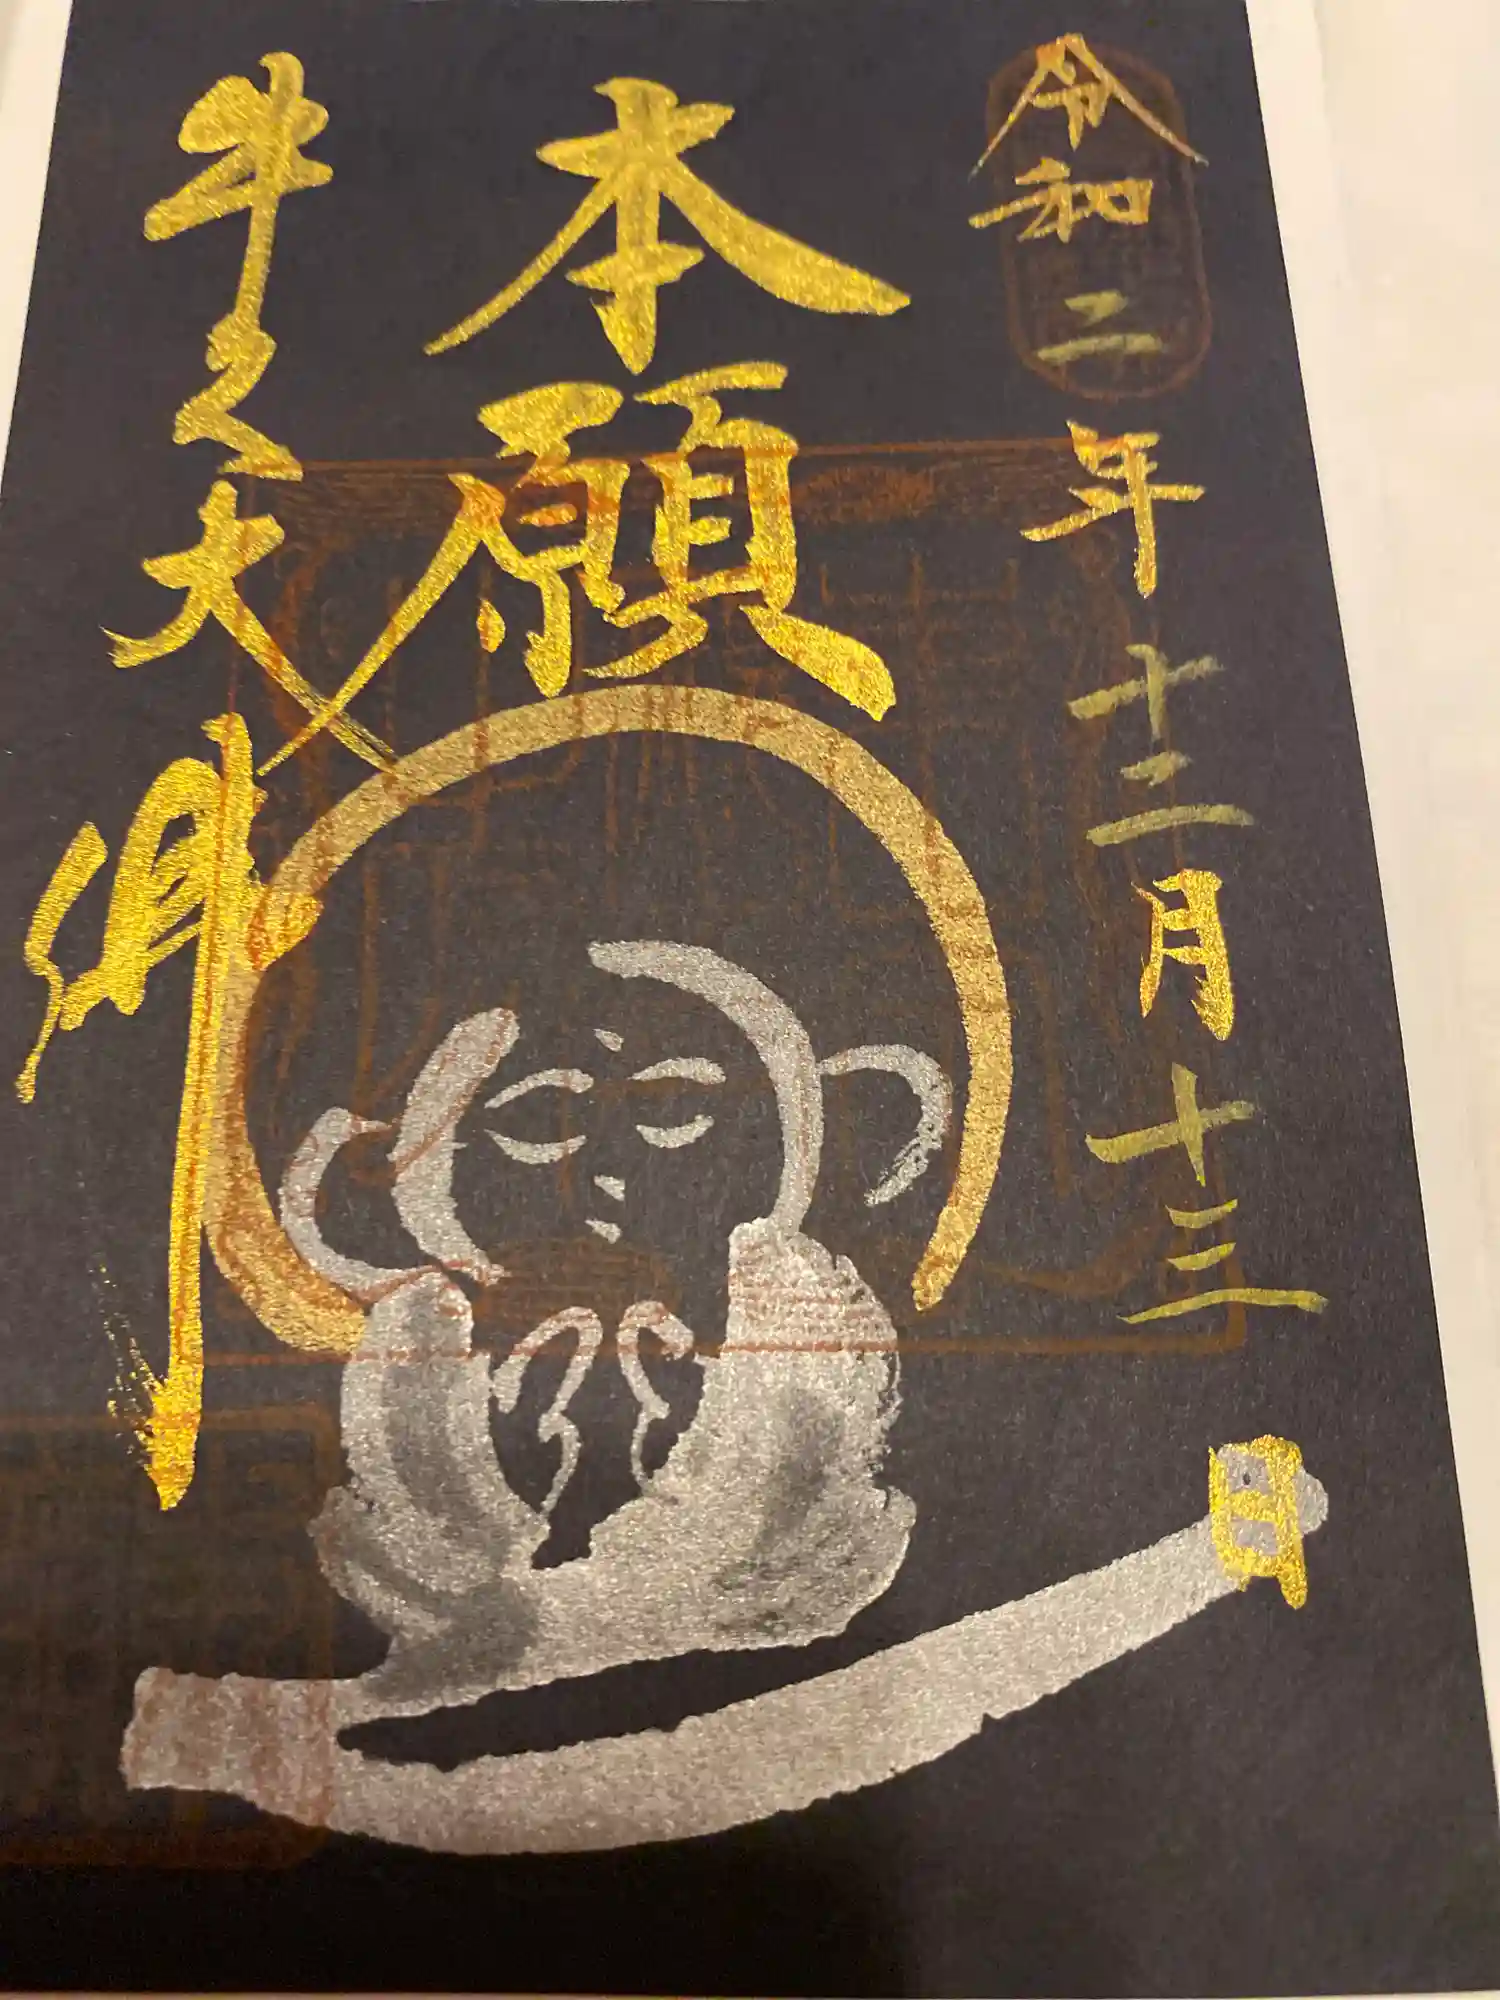 令和二年十二月十三日
本願
牛久大佛